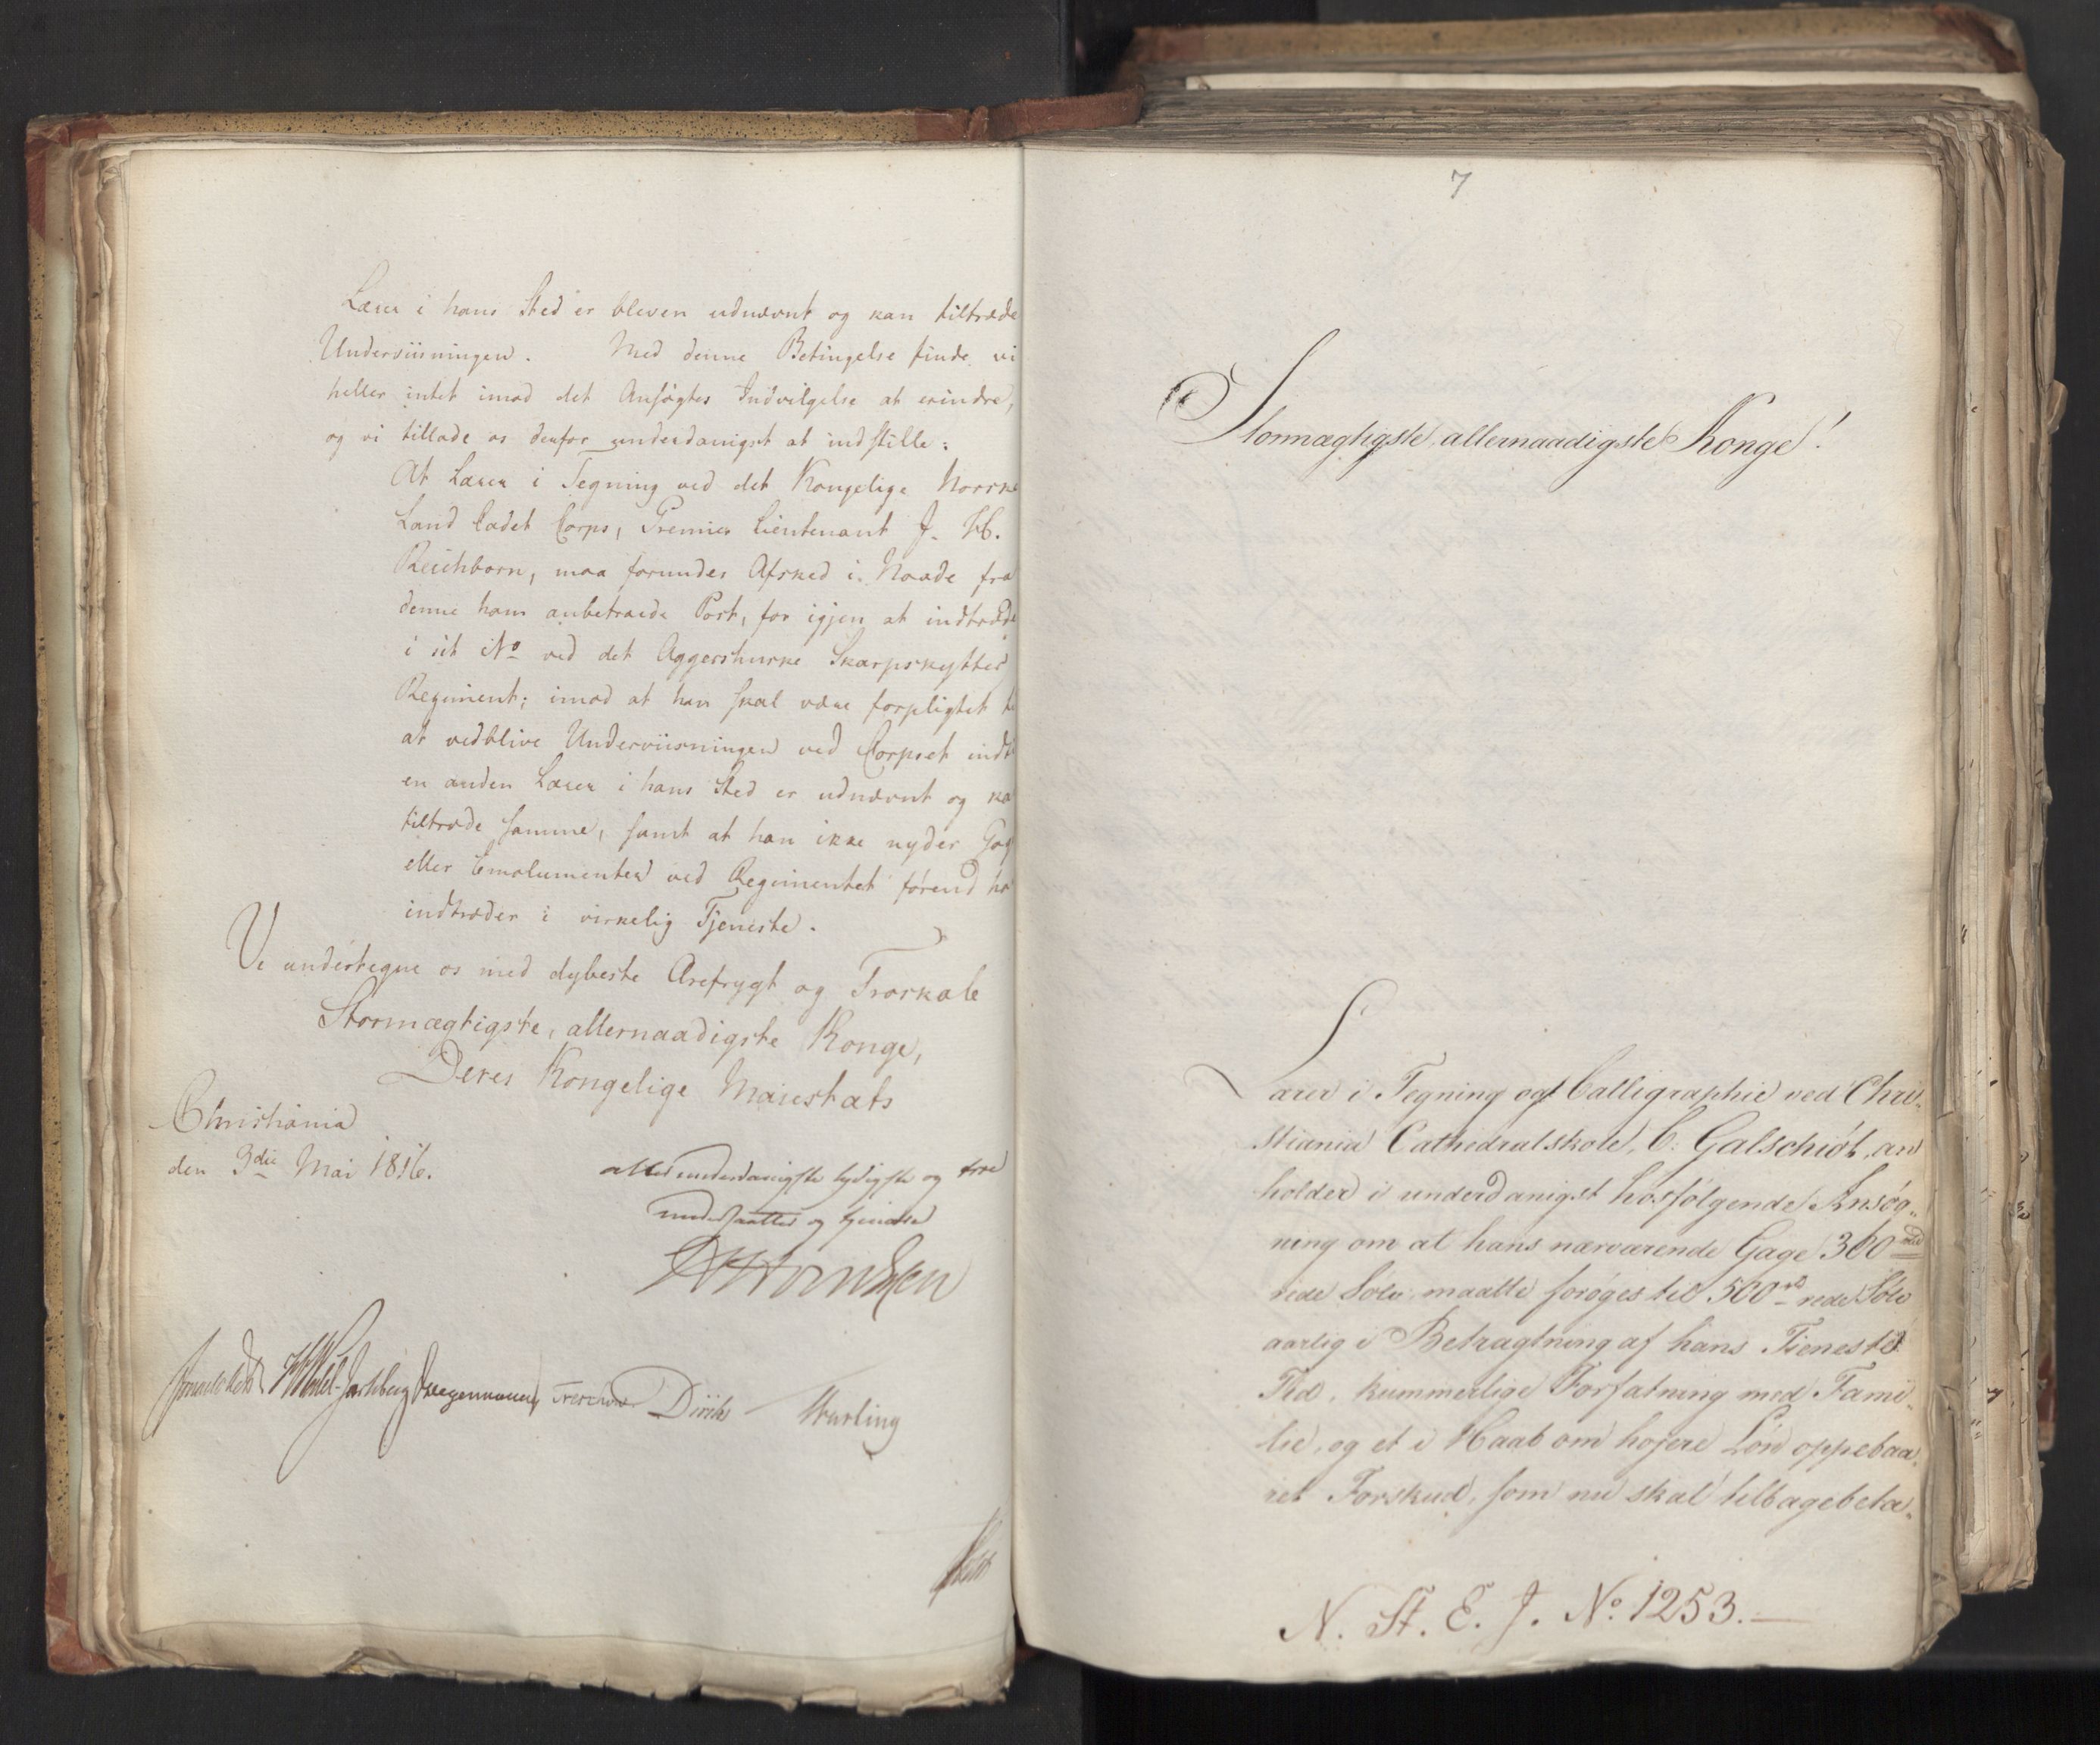 Lærer i hans Sted er bleven udnævnt og kan tiltræde
Underviisningen. Med denne Betingelse finde vi
heller intet imod det Ansøgtes Indvilgelse at erindre,
og vi tillade os derfor underdanigst at indstille:
At Lærer i Tegning ved det Kongelige Norske
Land Cadet Corps, Premier Lieutenant J. H.
Reichborn, maa forundes Afsked i Naade fra
denne ham anbetroede Post, for igjen at indtræde
i sit No ved det Aggershuuske Skarpskytter
Regiment; imod at han skal være forpligtet til
at vedblive Underviisningen ved Corpset indtil
en anden Lærer i hans Sted er udnævnt og kan
tiltræde samme, samt at han ikke nyder Gage
eller Emolumenter ved Regimentet førend han
indtræder i virkelig Tjeneste.
Vi undertegne os med dybeste Ærefrygt og Troskab
Stormægtigste, allernaadigste Konge,
Deres Kongelige Majestæts
Christiania
den 3die Mai 1816.
allerunderdanigste lydigste og troe
undersaatter og tjenere
Sommerhielm Wedel-Jarlsberg Krogh Treschow Diriks
7
Stormægtigste, allernaadigste Konge!
Lærer i Tegning og Calligraphie ved Chri-
stiania Cathedralskole, C. Galschiöt, an
holder i underdanigst hosfølgende Ansøg-
ning om at hans nærværende Gage 300
rede Sölv, maatte forøges til 500 rede Sölv
aarlig i Betragtning af hans Tjeneste
Tid, kummerlige Forfatning med Fami-
lie, og et i Haab om højere Lön oppebaa-
ret Forskud, som nu skal tilbagebeta-
N. St. E. J. No. 1253.